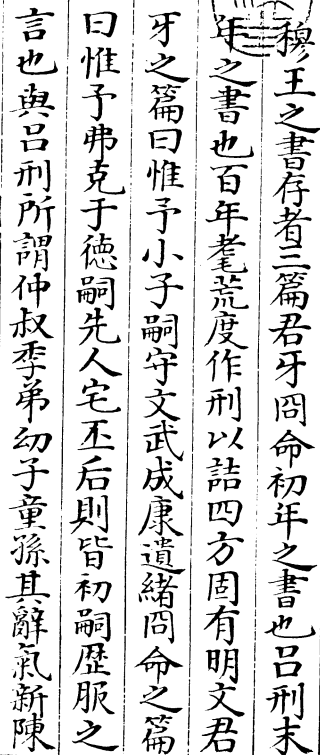 穆王之書存者三篇君牙冏命初年之書也呂刑末
年之書也百年耄荒度作刑以詰四方固有明文君
牙之篇曰惟予小子嗣守文武成康遺緒冏命之篇
曰惟予弗克于德嗣先人宅丕后則皆初嗣歴服之
言也與呂刑所謂仲叔季弟幼子童孫其辭氣新陳